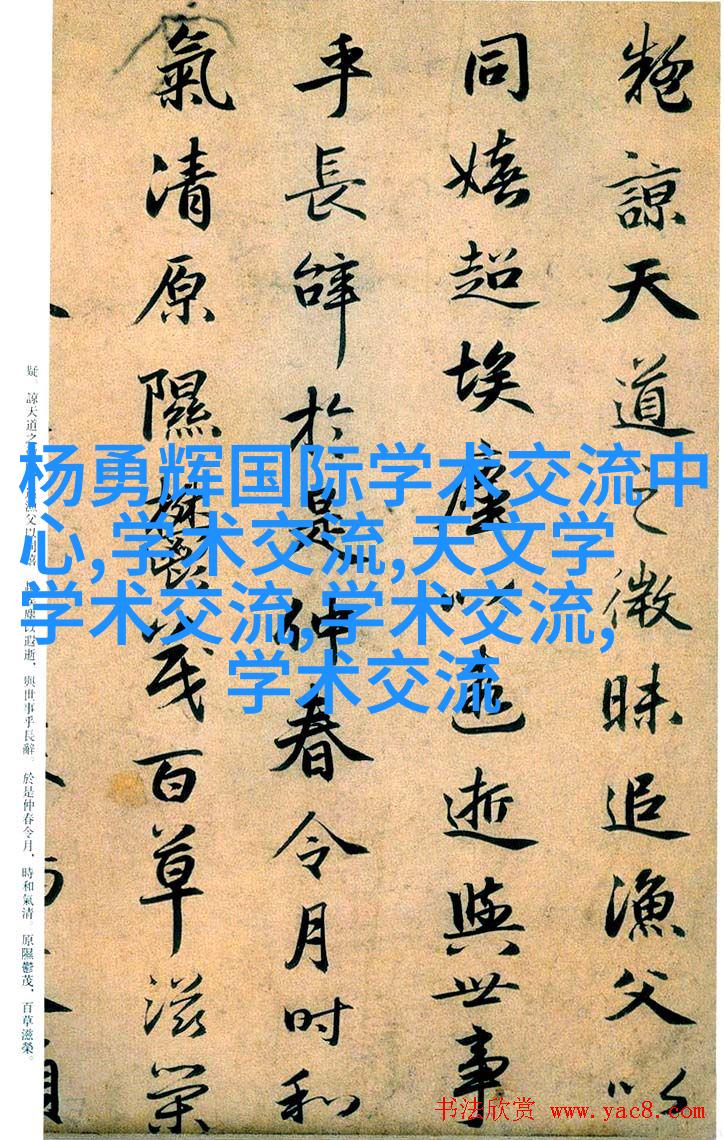 疑諒天道之微昧追漁父以
同嬉超埃塵以遐逝與世事
乎長辭於是仲春令月時和
氣清原隰鬱茂百草滋榮
疑。諒天道之漁父以同嬉塵以遐逝、與世事乎長辭。於是仲春令月，時和氣清。原隰鬱茂，百草滋榮。
杨勇辉国际学术交流中
心,学术交流,天文学
学术交流,学术交流,
学术交流
书法欣赏 www.yac8.com